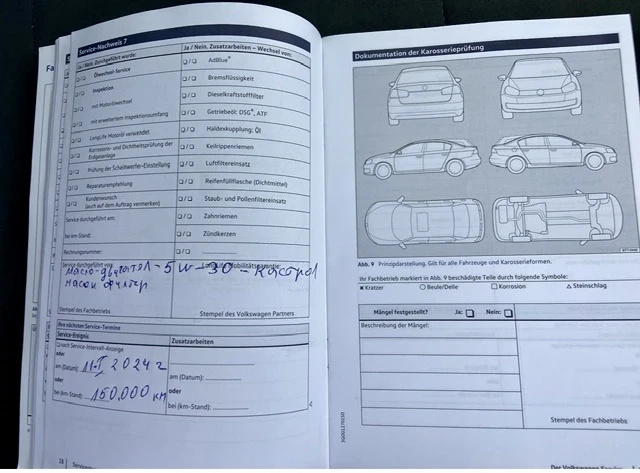 Service-Nachweis 7
Ja / Nein. Durchgeführt wurde:
Ja / Nein. Zusatzarbeiten – Wechsel von:
Ölwechsel-Service
AdBlue®
Inspektion
Bremsflüssigkeit
mit Motorölwechsel
Dieselkraftstofffilter
mit erweitertem Inspektionsumfang
Getriebeöl: DSG®, ATF
LongLife Motoröl verwendet
Haldexkupplung: Öl
Korrosions- und Dichtheitsprüfung der Erdgasanlage
Keilrippenriemen
Prüfung der Scheinwerfer-Einstellung
Luftfiltereinsatz
Reparaturempfehlung
Reifenfüllflasche (Dichtmittel)
Kundenwunsch
(auch auf dem Auftrag vermerken)
Staub- und Pollenfiltereinsatz
Service durchgeführt am:
Zahnriemen
bei km-Stand:
Zündkerzen
Rechnungsnummer:
Service durchgeführt von
5W-30
Stempel des Fachbetriebs
Stempel des Volkswagen Partners
Ihre nächsten Service-Termine
Service-Ereignis
Zusatzarbeiten
nach Service-Intervall-Anzeige
oder
am (Datum): 2024 г
am (Datum):
oder
oder
bei (km-Stand): 150,000 км
bei (km-Stand):
Dokumentation der Karosserieprüfung
Abb. 9 Prinzipdarstellung. Gilt für alle Fahrzeuge und Karosserieformen.
Ihr Fachbetrieb markiert in Abb. 9 beschädigte Teile durch folgende Symbole:
Kratzer
Beule/Delle
Korrosion
Steinschlag
Mängel festgestellt? Ja: Nein:
Beschreibung der Mängel:
Stempel des Fachbetriebs: